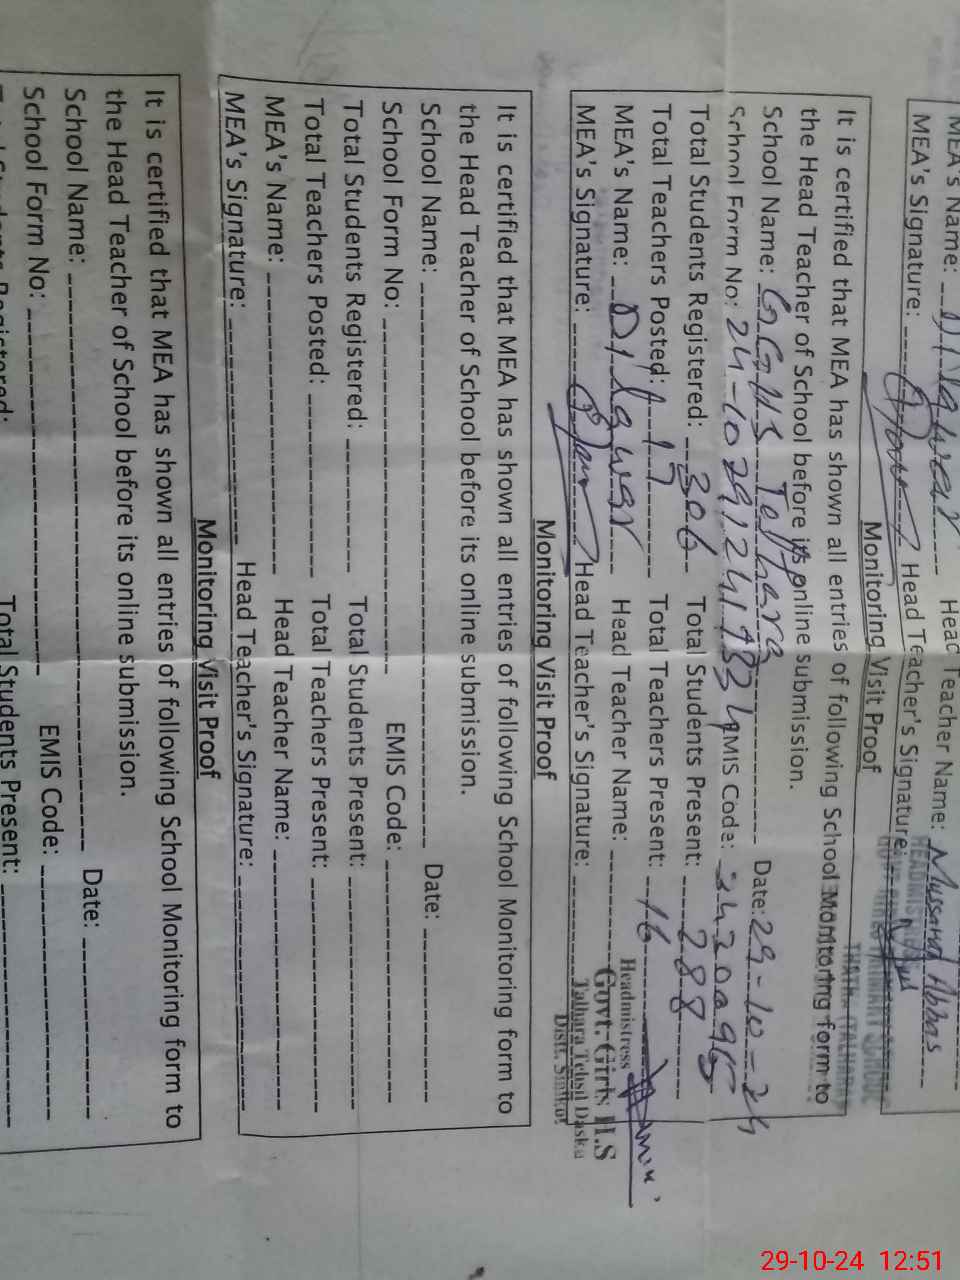 MEA's Name: Dilawar Head Teacher Name: Mussarat Abbas
MEA's Signature: Head Teacher's Signature:
Monitoring Visit Proof
It is certified that MEA has shown all entries of following School Monitoring form to
the Head Teacher of School before its online submission.
School Name: GGHS Talhara Date: 29-10-24
School Form No: EMIS Code:
Total Students Registered: 306 Total Students Present: 288
Total Teachers Posted: 17 Total Teachers Present: 16
MEA's Name: Dilawar Head Teacher Name:
MEA's Signature: Head Teacher's Signature:
Headmistress
Govt. Girls H.S
Talhara Tehsil Daska
Distt. Sialkot
Monitoring Visit Proof
It is certified that MEA has shown all entries of following School Monitoring form to
the Head Teacher of School before its online submission.
School Name: Date:
School Form No: EMIS Code:
Total Students Registered: Total Students Present:
Total Teachers Posted: Total Teachers Present:
MEA's Name: Head Teacher Name:
MEA's Signature: Head Teacher's Signature:
Monitoring Visit Proof
It is certified that MEA has shown all entries of following School Monitoring form to
the Head Teacher of School before its online submission.
School Name: Date:
School Form No: EMIS Code:
Total Students Registered: Total Students Present:
29-10-24 12:51